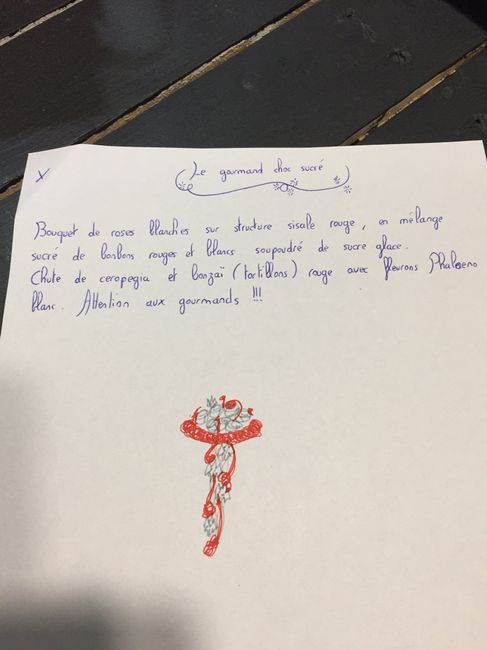 Le gourmand choc sucré
Bouquet de roses blanches sur structure sisale rouge, en mélange
sucré de bonbons rouges et blancs soupoudré de sucre glace.
Chute de ceropegia et bonzaï (tortillons) rouge avec fleurons Phalaeno
blanc. Attention aux gourmands !!!